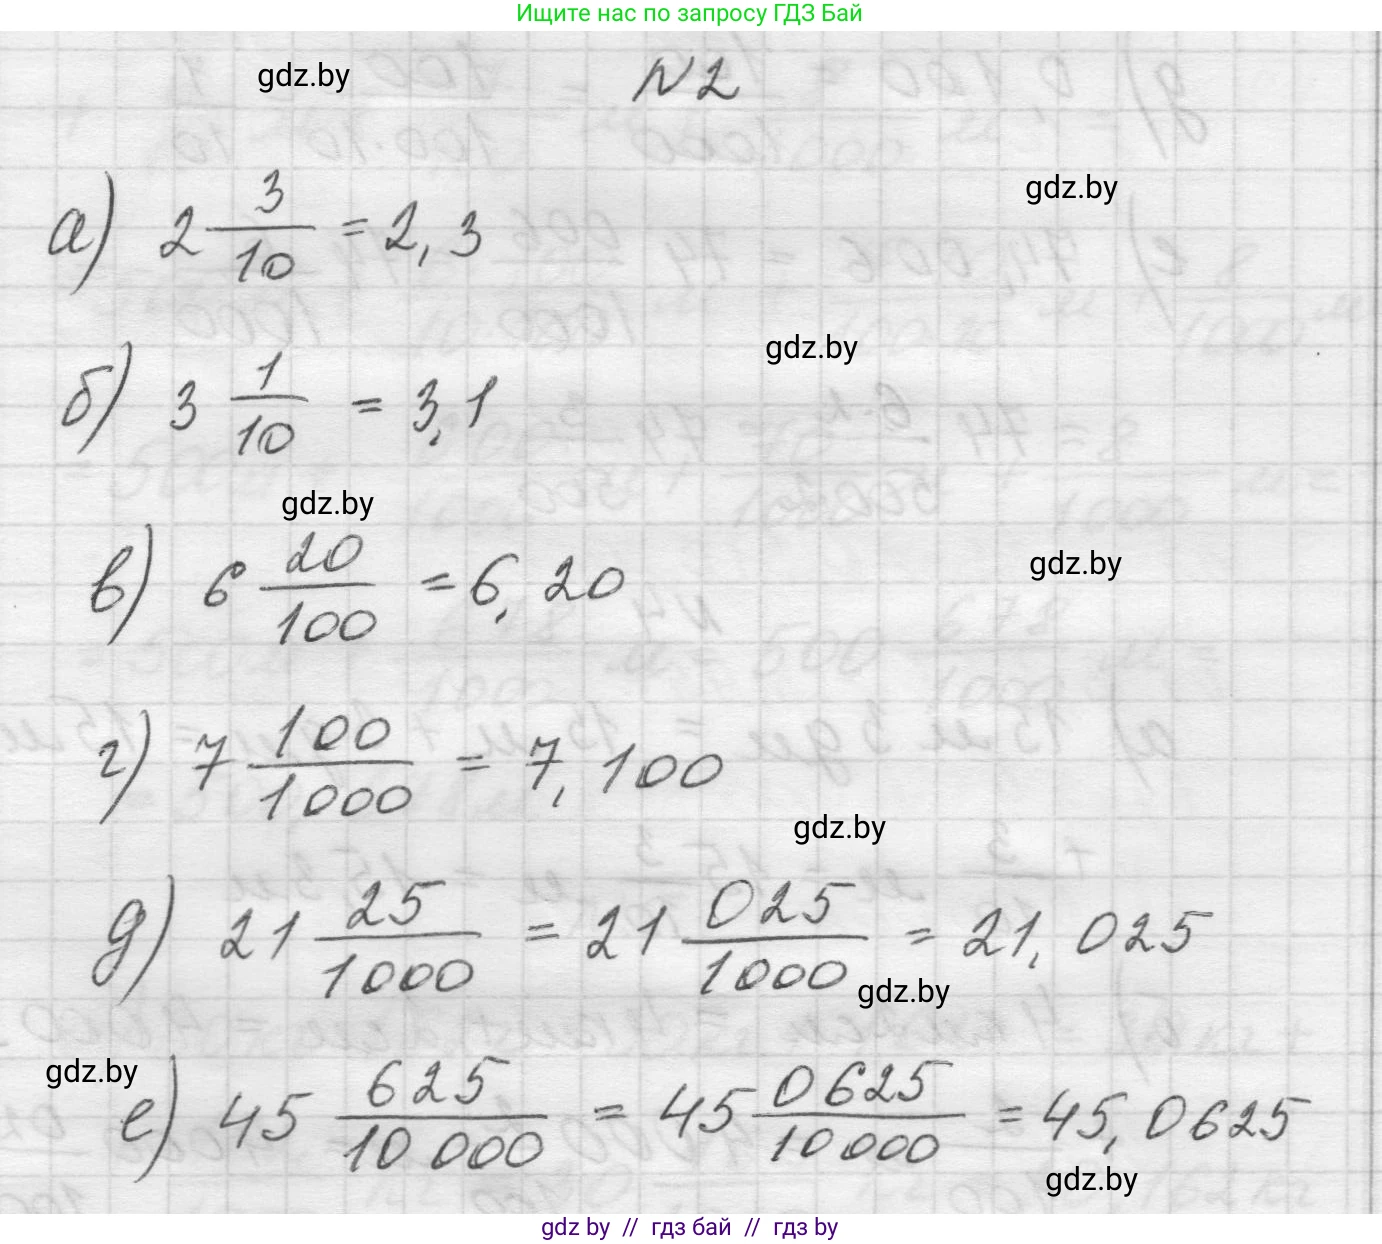 Ищите нас по запросу ГДЗ Бай
gdz.by
N2
gdz.by
а) 2 3/10 = 2,3
gdz.by
б) 3 1/10 = 3,1
gdz.by
в) 6 20/100 = 6,20
gdz.by
г) 7 100/1000 = 7,100
gdz.by
д) 21 25/1000 = 21 025/1000 = 21,025
gdz.by
gdz.by
е) 45 625/10 000 = 45 0625/10 000 = 45,0625
gdz.by
gdz by // гдз бай // гдз by